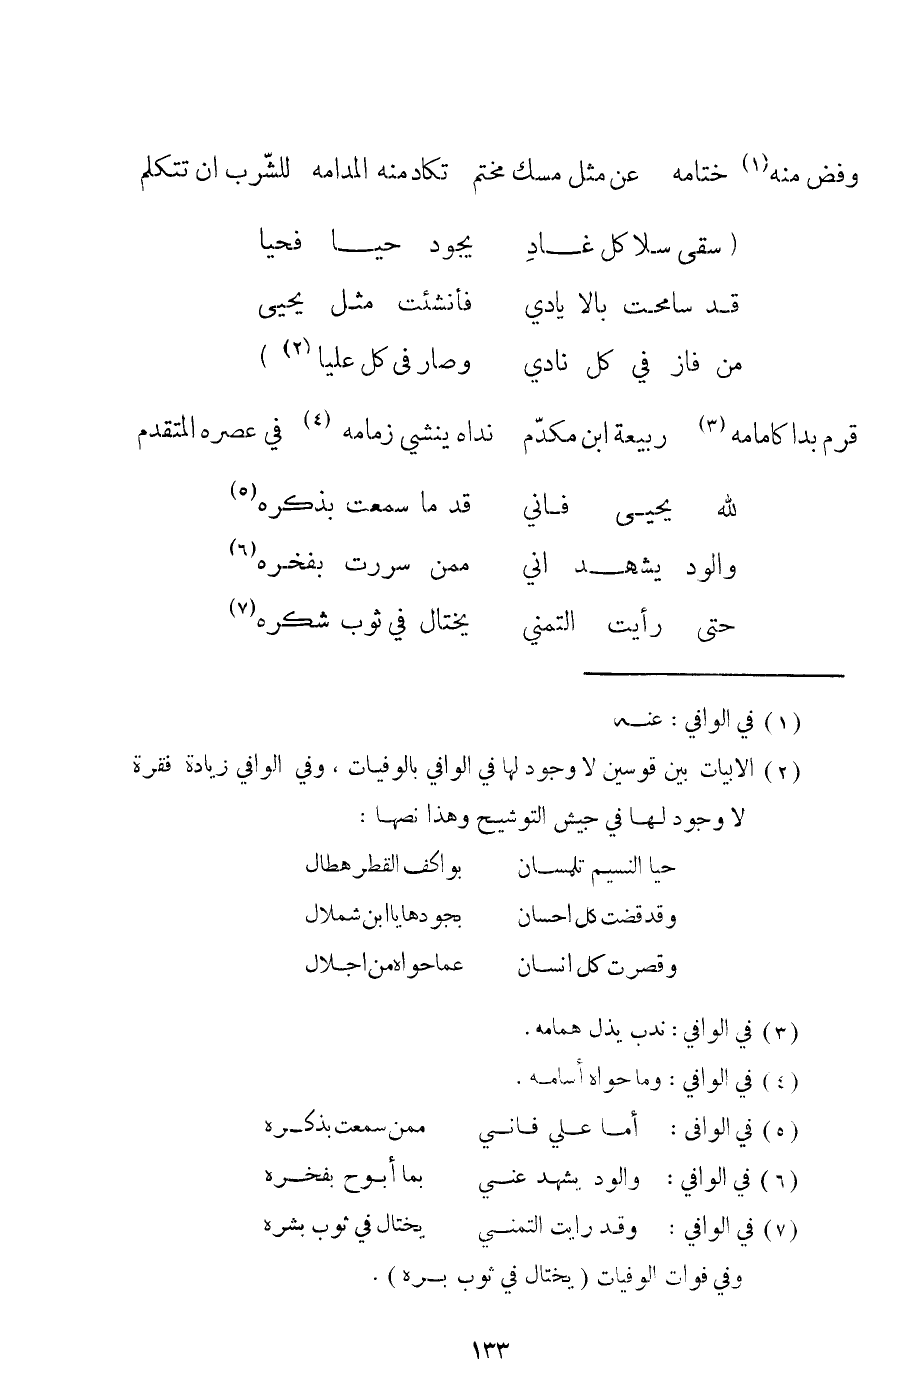 وفض منه(١) ختامه عن مثل مسك مختم تكاد منه المدامه للشّرب ان تتكلم
( سقى سلا كل غادِ يجود حيا فحيا
قد سامحت بالا يادي فأنشئت مثل يحيى
من فاز في كل نادي وصار في كل عليا(٢) )
قرم بدا كمامه(٣) ربيعة ابن مكدّم نداه ينشي زمامه(٤) في عصره المتقدم
لله يحيى فاني قد ما سمعت بذكره(٥)
والود يشهد اني ممن سررت بفخره(٦)
حتى رأيت التمني يختال في ثوب شكره(٧)
(١) في الوافي : عنه
(٢) الابيات بين قوسين لا وجود لها في الوافي بالوفيات ، وفي الوافي زيادة فقرة
لا وجود لها في جيش التوشيح وهذا نصها :
حيا النسيم تلمسان بواكف القطر هطال
وقد قضت كل احسان بجودها يا ابن شملال
وقصرت كل انسان عما حواه من اجلال
(٣) في الوافي : ندب يذل همامه .
(٤) في الوافي : وما حواه أسامه .
(٥) في الوافي : أما علي فاني ممن سمعت بذكره
(٦) في الوافي : والود يشهد عني بما أبوح بفخره
(٧) في الوافي : وقد رايت التمني يختال في ثوب بشره
وفي فوات الوفيات ( يختال في ثوب بره ) .
١٣٣